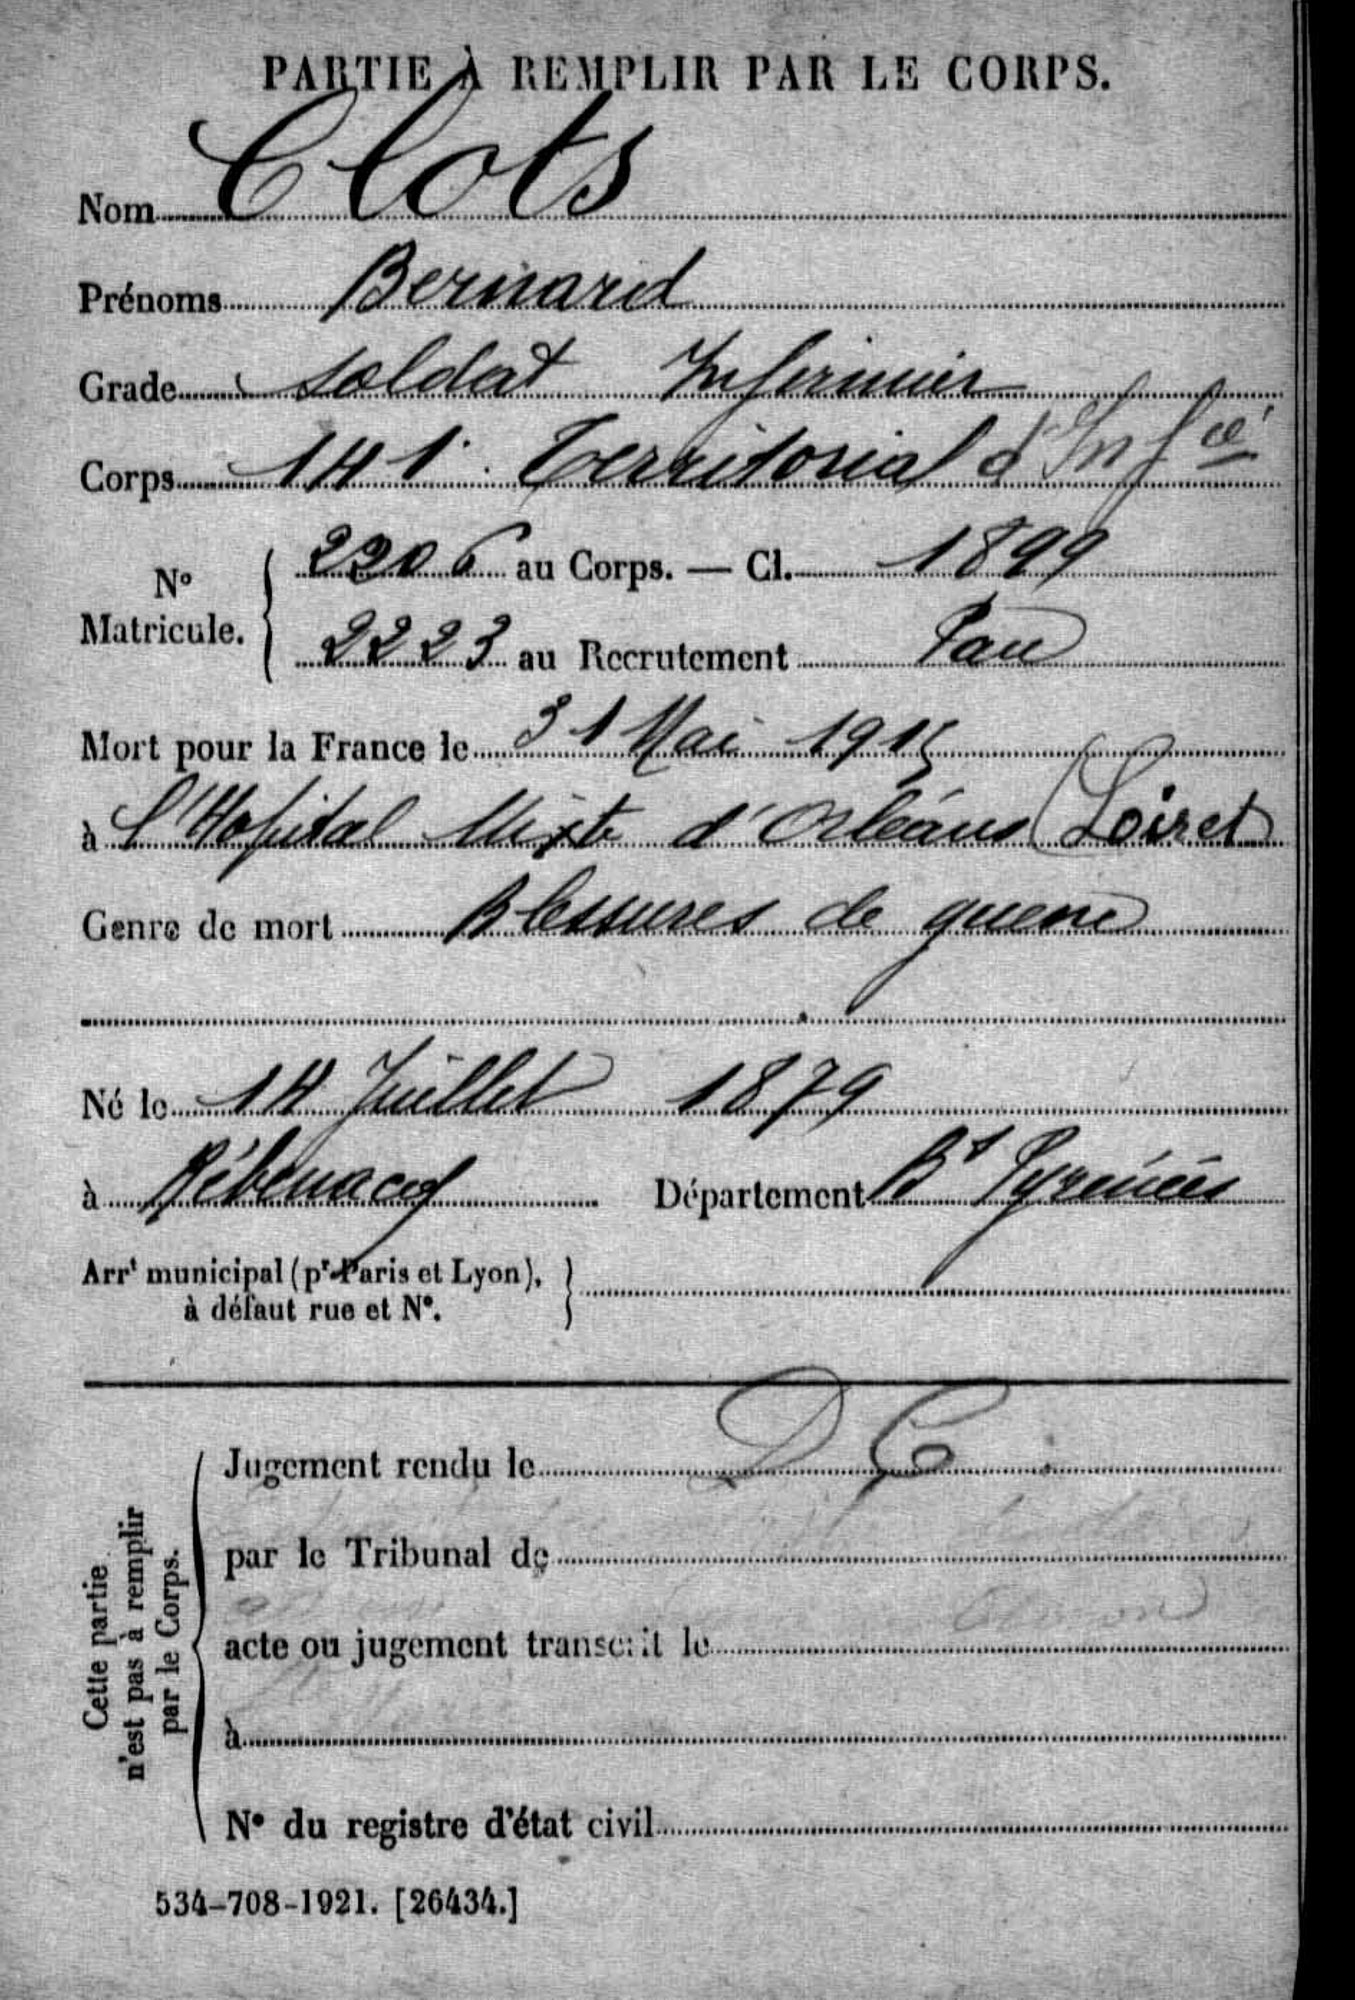 PARTIE À REMPLIR PAR LE CORPS.
Nom Clots
Prénoms Bernard
Grade soldat Infirmier
Corps 141e Territorial d'Infie
N° Matricule. { 2206 au Corps. — Cl. 1899
2223 au Recrutement Pau
Mort pour la France le 31 Mai 1915
à l'Hopital Mixte d'Orléans (Loiret)
Genre de mort Blessures de guerre
Né le 14 Juillet 1879
à Rébenacq Département Bs Pyrénées
Arrt municipal (pr Paris et Lyon),
à défaut rue et N°.
Cette partie
n'est pas à remplir
par le Corps.
Jugement rendu le D C
par le Tribunal de
acte ou jugement transcrit le
à
N° du registre d'état civil
534-708-1921. [26434.]